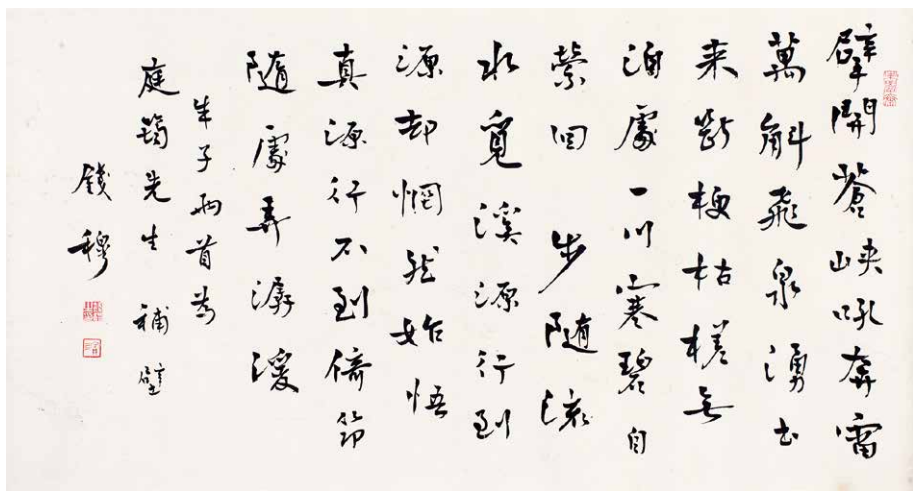 擘開蒼峽吼奔雷
萬斛飛泉湧出
来斷梗枯槎無
泊處一川寒碧自
縈回 步隨流
水覓溪源行到
源却惘然始悟
真源行不到倚筇
隨處弄潺湲
朱子兩首為
庭筠先生 補壁
錢穆